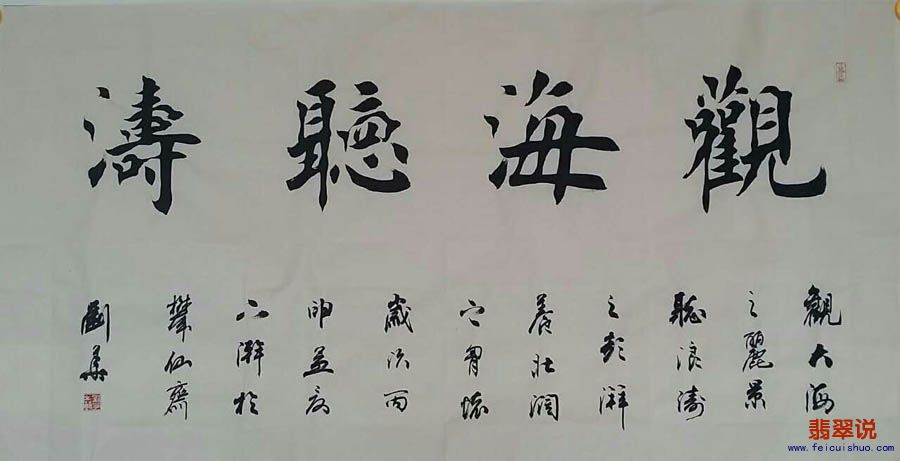 觀海聽濤
觀大海
之麗景
聽浪濤
之彭湃
養壯闊
之胃懷
歲次丙
申孟夏
劉华
翡翠说
www.feicuishuo.com